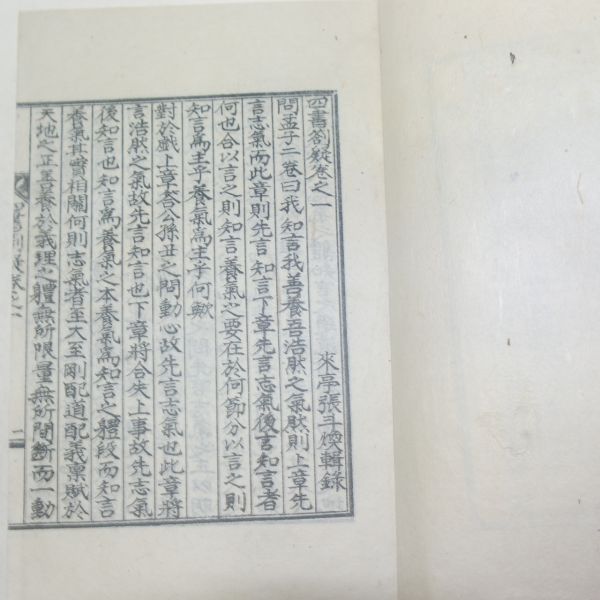 四書劄疑卷之一
來亭張斗煥輯錄
問孟子二卷曰我知言我善養吾浩然之氣然則上章先
言志氣而此章則先言知言下章先言志氣後言知言者
何也合以言之則知言養氣之要在於何節分以言之則
知言爲主乎養氣爲主乎何歟
對於戲上章答公孫丑之問動心故先言志氣也此章將
言浩然之氣故先言知言也下章將合失上事故先志氣
後知言也知言爲養氣之本養氣爲知言之體段而知言
養氣其實相關何則志氣者至大至剛配道配義稟賦於
天地之正善養於義理之體無所限量無所間斷而一動